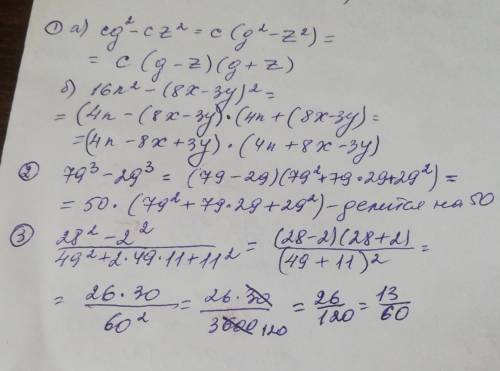 ① а) cg² - cz² = c (g² - z²) =
= c (g - z)(g + z)
б) 16n² - (8x - 3y)² =
= (4n - (8x - 3y)·(4n + (8x - 3y) =
= (4n - 8x + 3y) · (4n + 8x - 3y)
② 79³ - 29³ = (79 - 29)(79² + 79·29 + 29²) =
= 50·(79² + 79·29 + 29²) - делится на 50
③ 28² - 2² / 49² + 2·49·11 + 11² = (28 - 2)(28 + 2) / (49 + 11)² =
= 26·30 / 60² = 26·30 / 3600 120 = 26/120 = 13/60